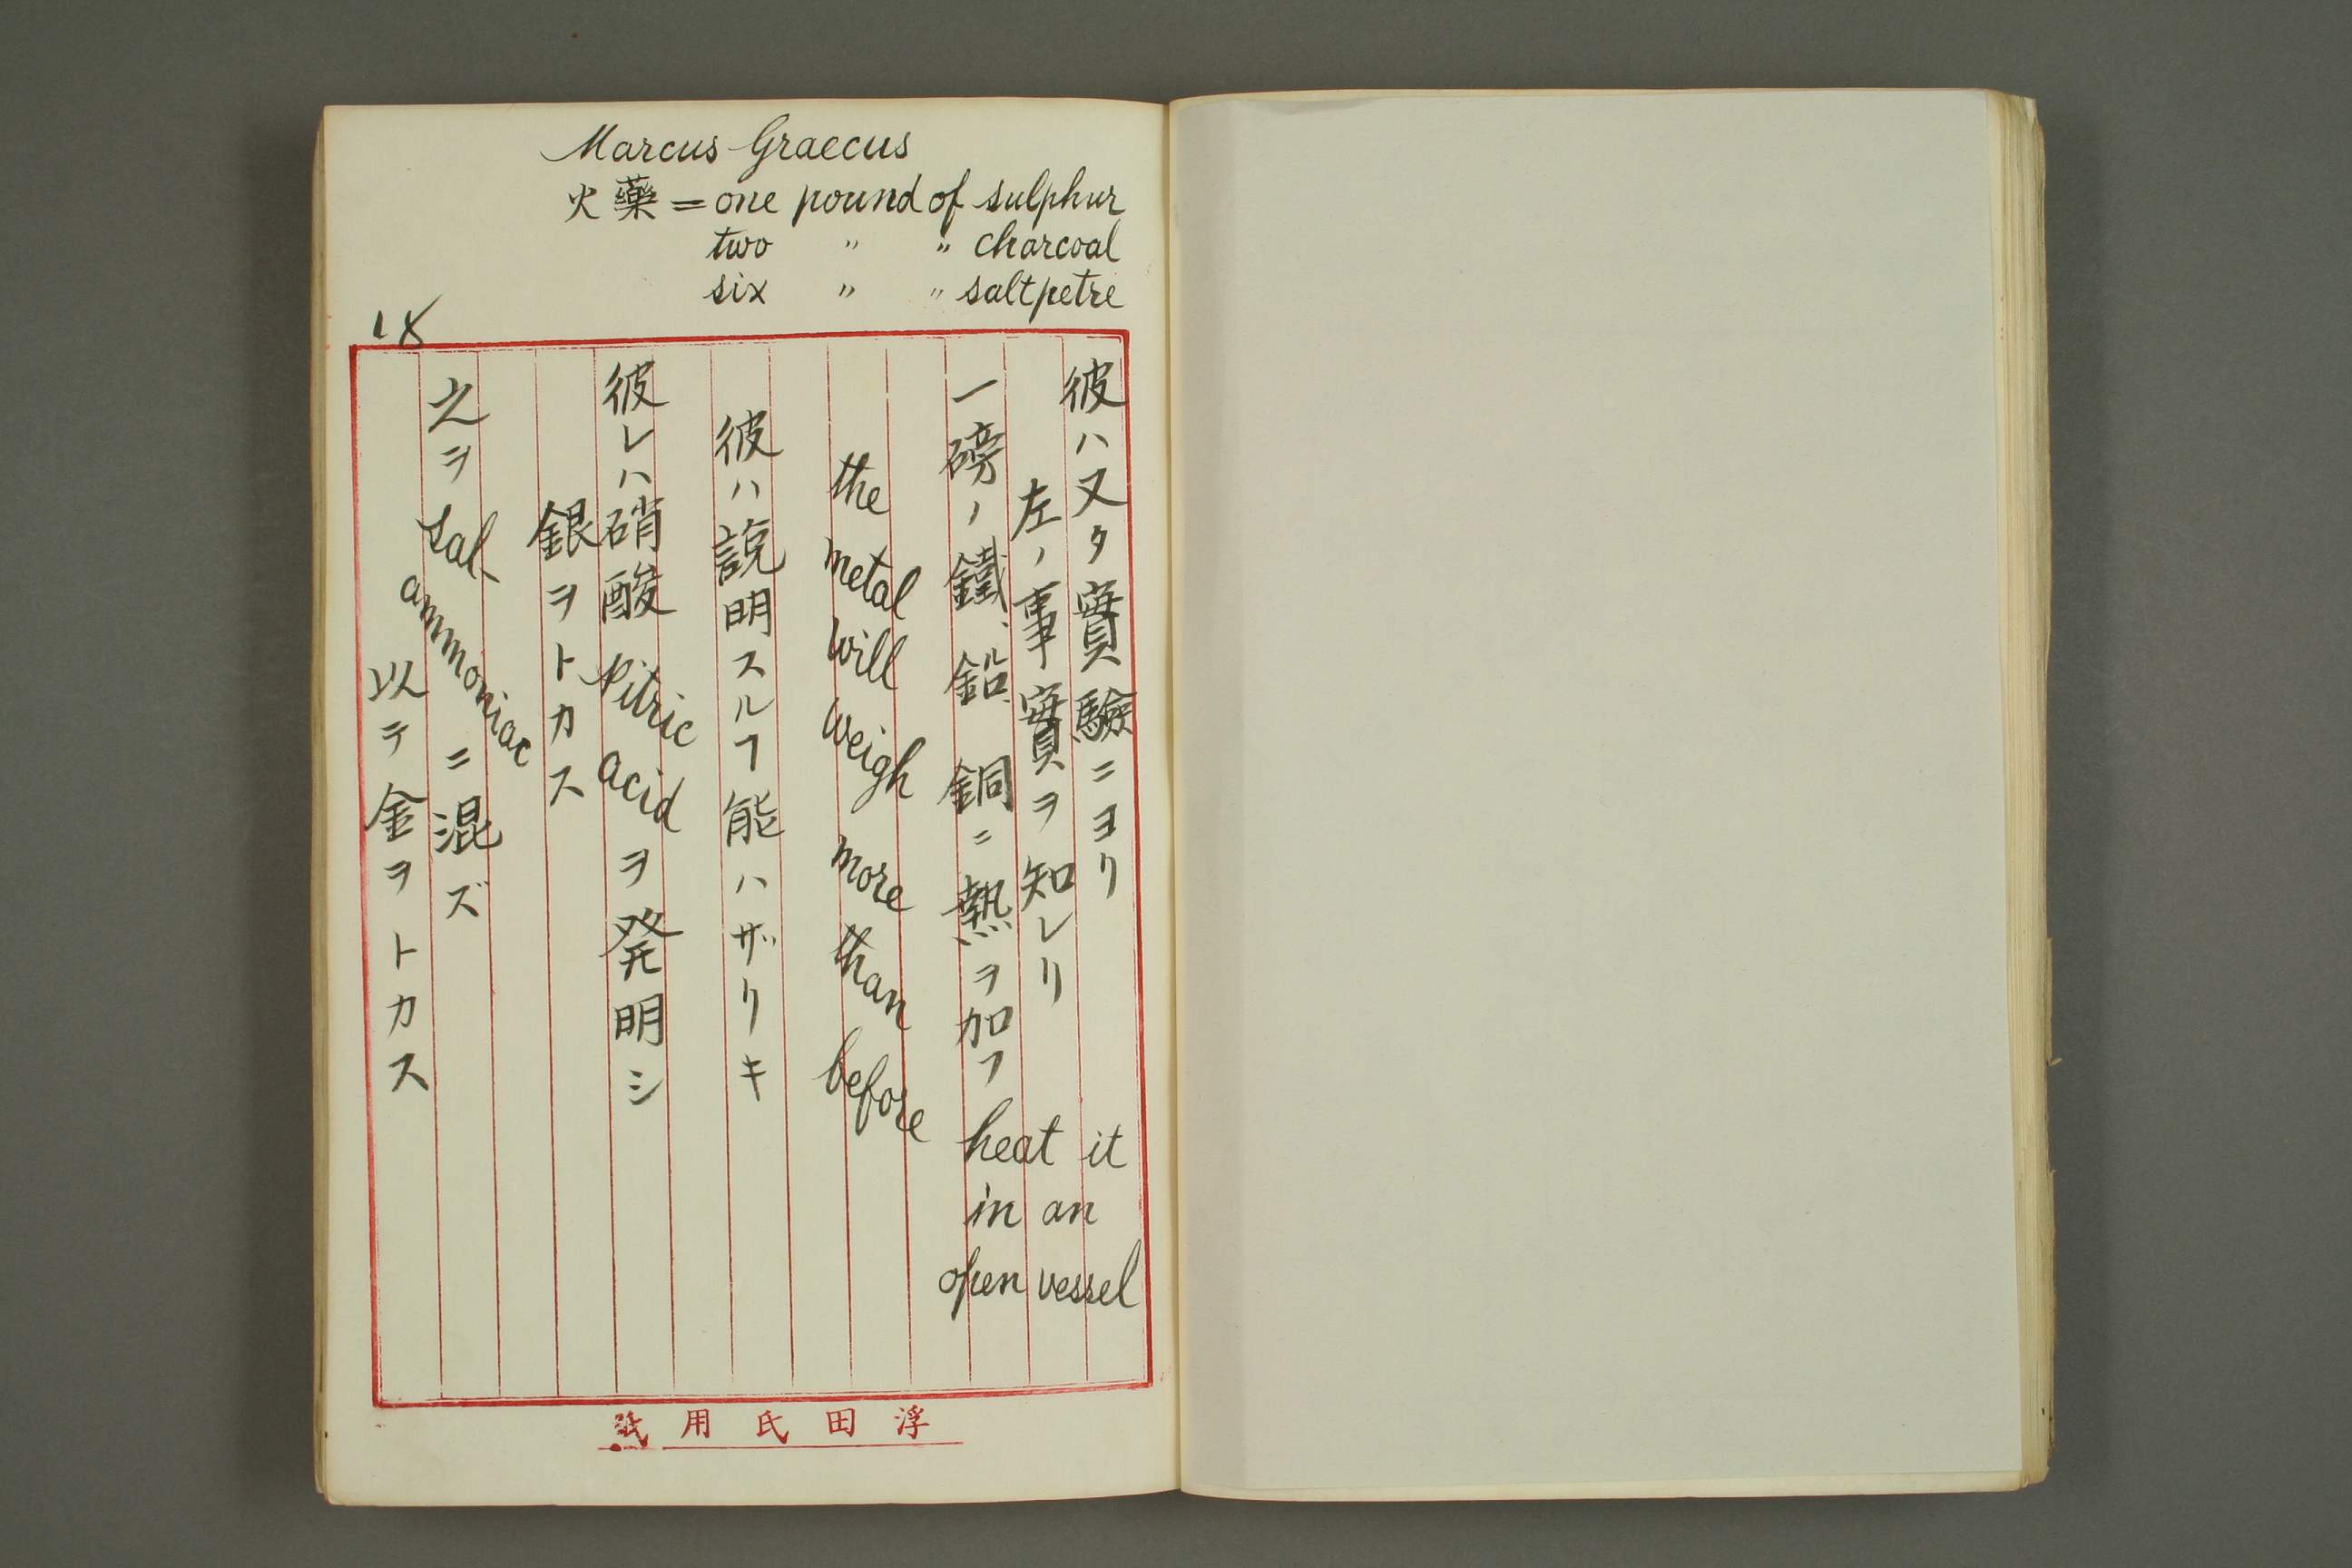 Marcus Graecus
火藥=one pound of sulphur
two 〃 〃 charcoal
six 〃 〃 saltpetre
18
彼ハ又タ實驗ニヨリ
左ノ事實ヲ知レリ
一磅ノ鐵、鉛、銅ニ熱ヲ加フ heat it in an open vessel
the metal will weigh more than before
彼ハ説明スルヿ能ハザリキ
彼レハ硝酸 pitric acid ヲ発明シ
銀ヲトカス
之ヲ sal-ammoniac ニ混ズ
以テ金ヲトカス
浮田氏用紙